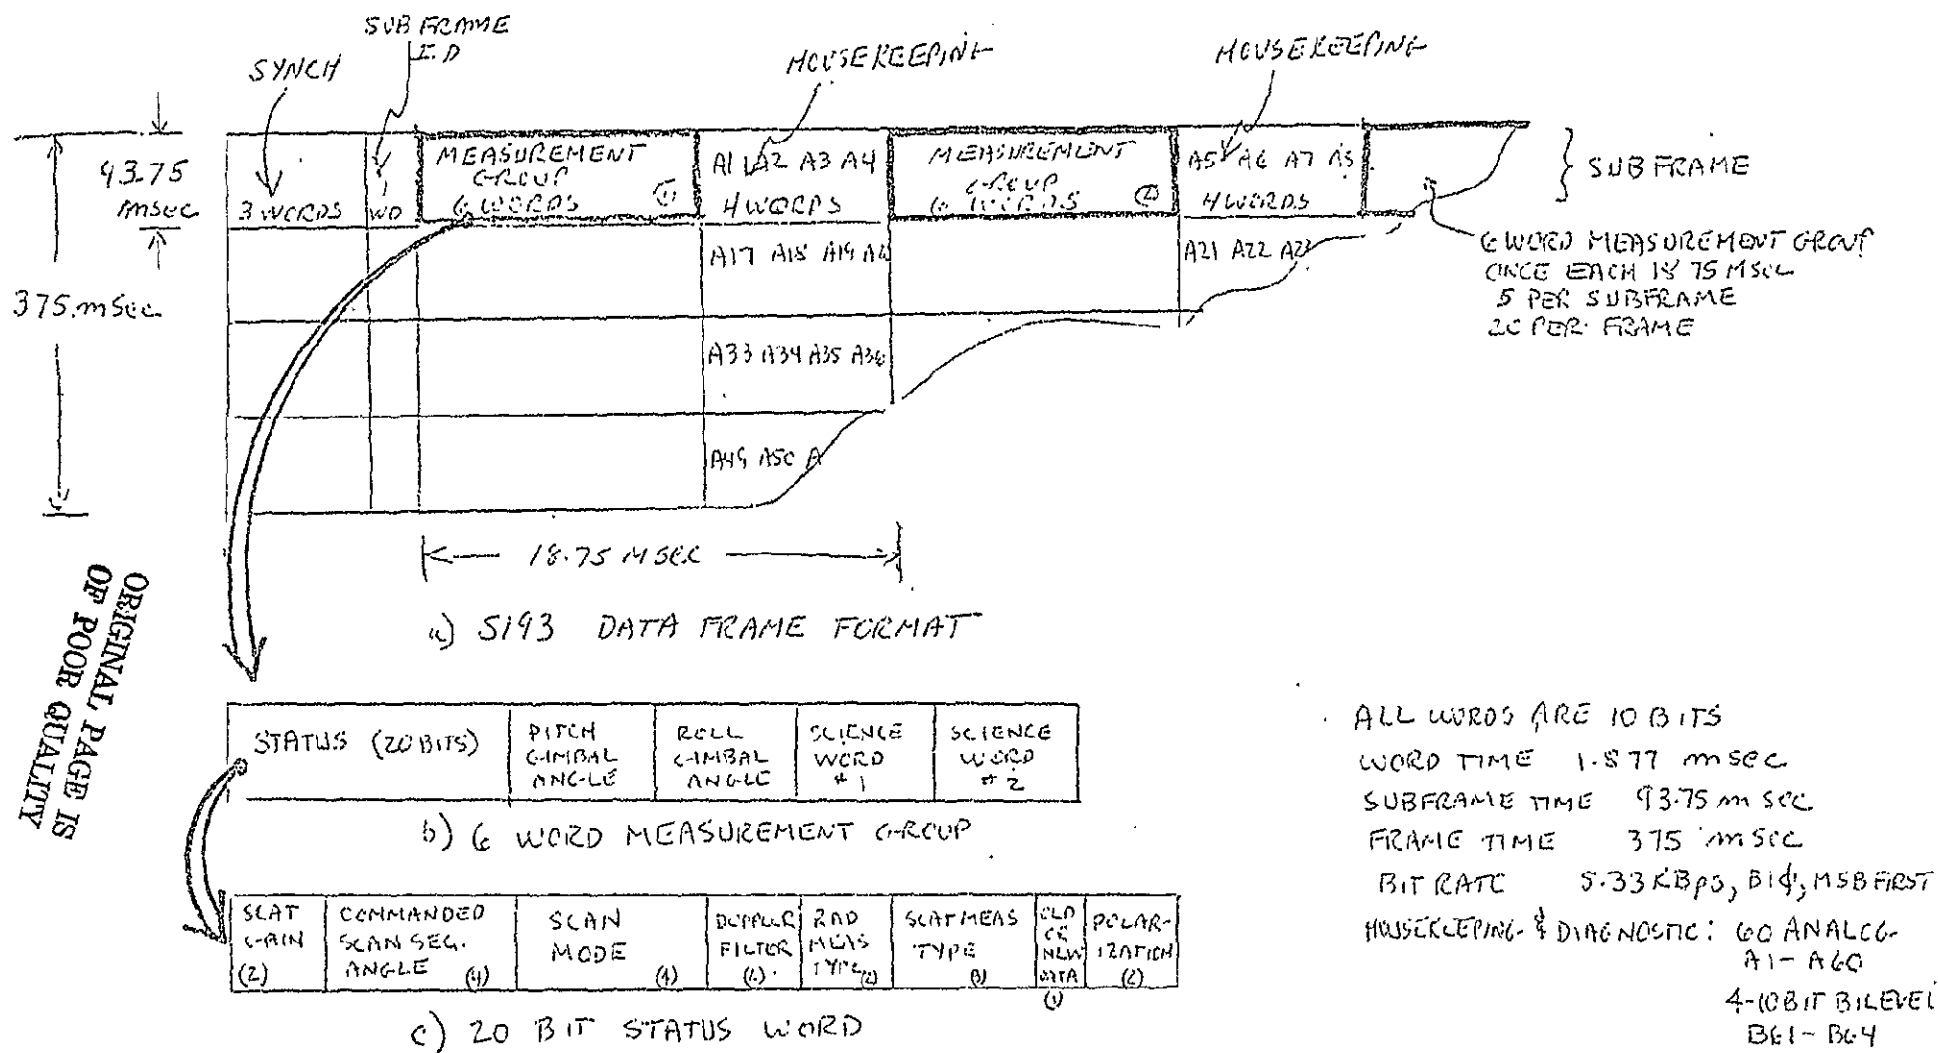 SUB FRAME
I.D
SYNCH
HOUSEKEEPING
HOUSEKEEPING
93.75
msec
375 msec
3 WORDS
1
WD
MEASUREMENT
GROUP
6 WORDS
①
A1 A2 A3 A4
4 WORDS
MEASUREMENT
GROUP
6 WORDS
②
A5 A6 A7 A8
4 WORDS
SUB FRAME
A17 A18 A19 A2
A21 A22 A23
6 WORD MEASUREMENT GROUP
ONCE EACH 18 75 MSEC
5 PER SUBFRAME
20 PER FRAME
A33 A34 A35 A36
A49 A50 A
18.75 MSEC
a) S193 DATA FRAME FORMAT
ORIGINAL PAGE IS
OF POOR QUALITY
STATUS (20 BITS)
PITCH
GIMBAL
ANGLE
ROLL
GIMBAL
ANGLE
SCIENCE
WORD
# 1
SCIENCE
WORD
# 2
b) 6 WORD MEASUREMENT GROUP
SCAT
GAIN
(2)
COMMANDED
SCAN SEG.
ANGLE (4)
SCAN
MODE
(4)
DOPPLER
FILTER
(2)
RAD
MEAS
TYPE (2)
SCAT MEAS
TYPE
(3)
OLD
OR
NEW
DATA
(1)
POLAR-
IZATION
(2)
c) 20 BIT STATUS WORD
ALL WORDS ARE 10 BITS
WORD TIME 1.877 msec
SUBFRAME TIME 93.75 m sec
FRAME TIME 375 msec
BIT RATE 5.33 KBps, BIϕ, MSB FIRST
HOUSEKEEPING & DIAGNOSTIC: 60 ANALOG-
A1 - A60
4-10 BIT BILEVEL
B61 - B64